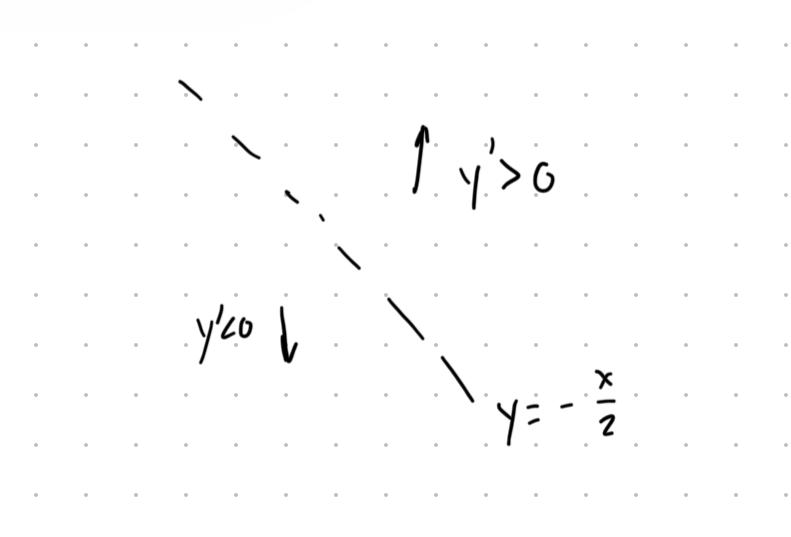 y'>0
y'<0
y=-x/2